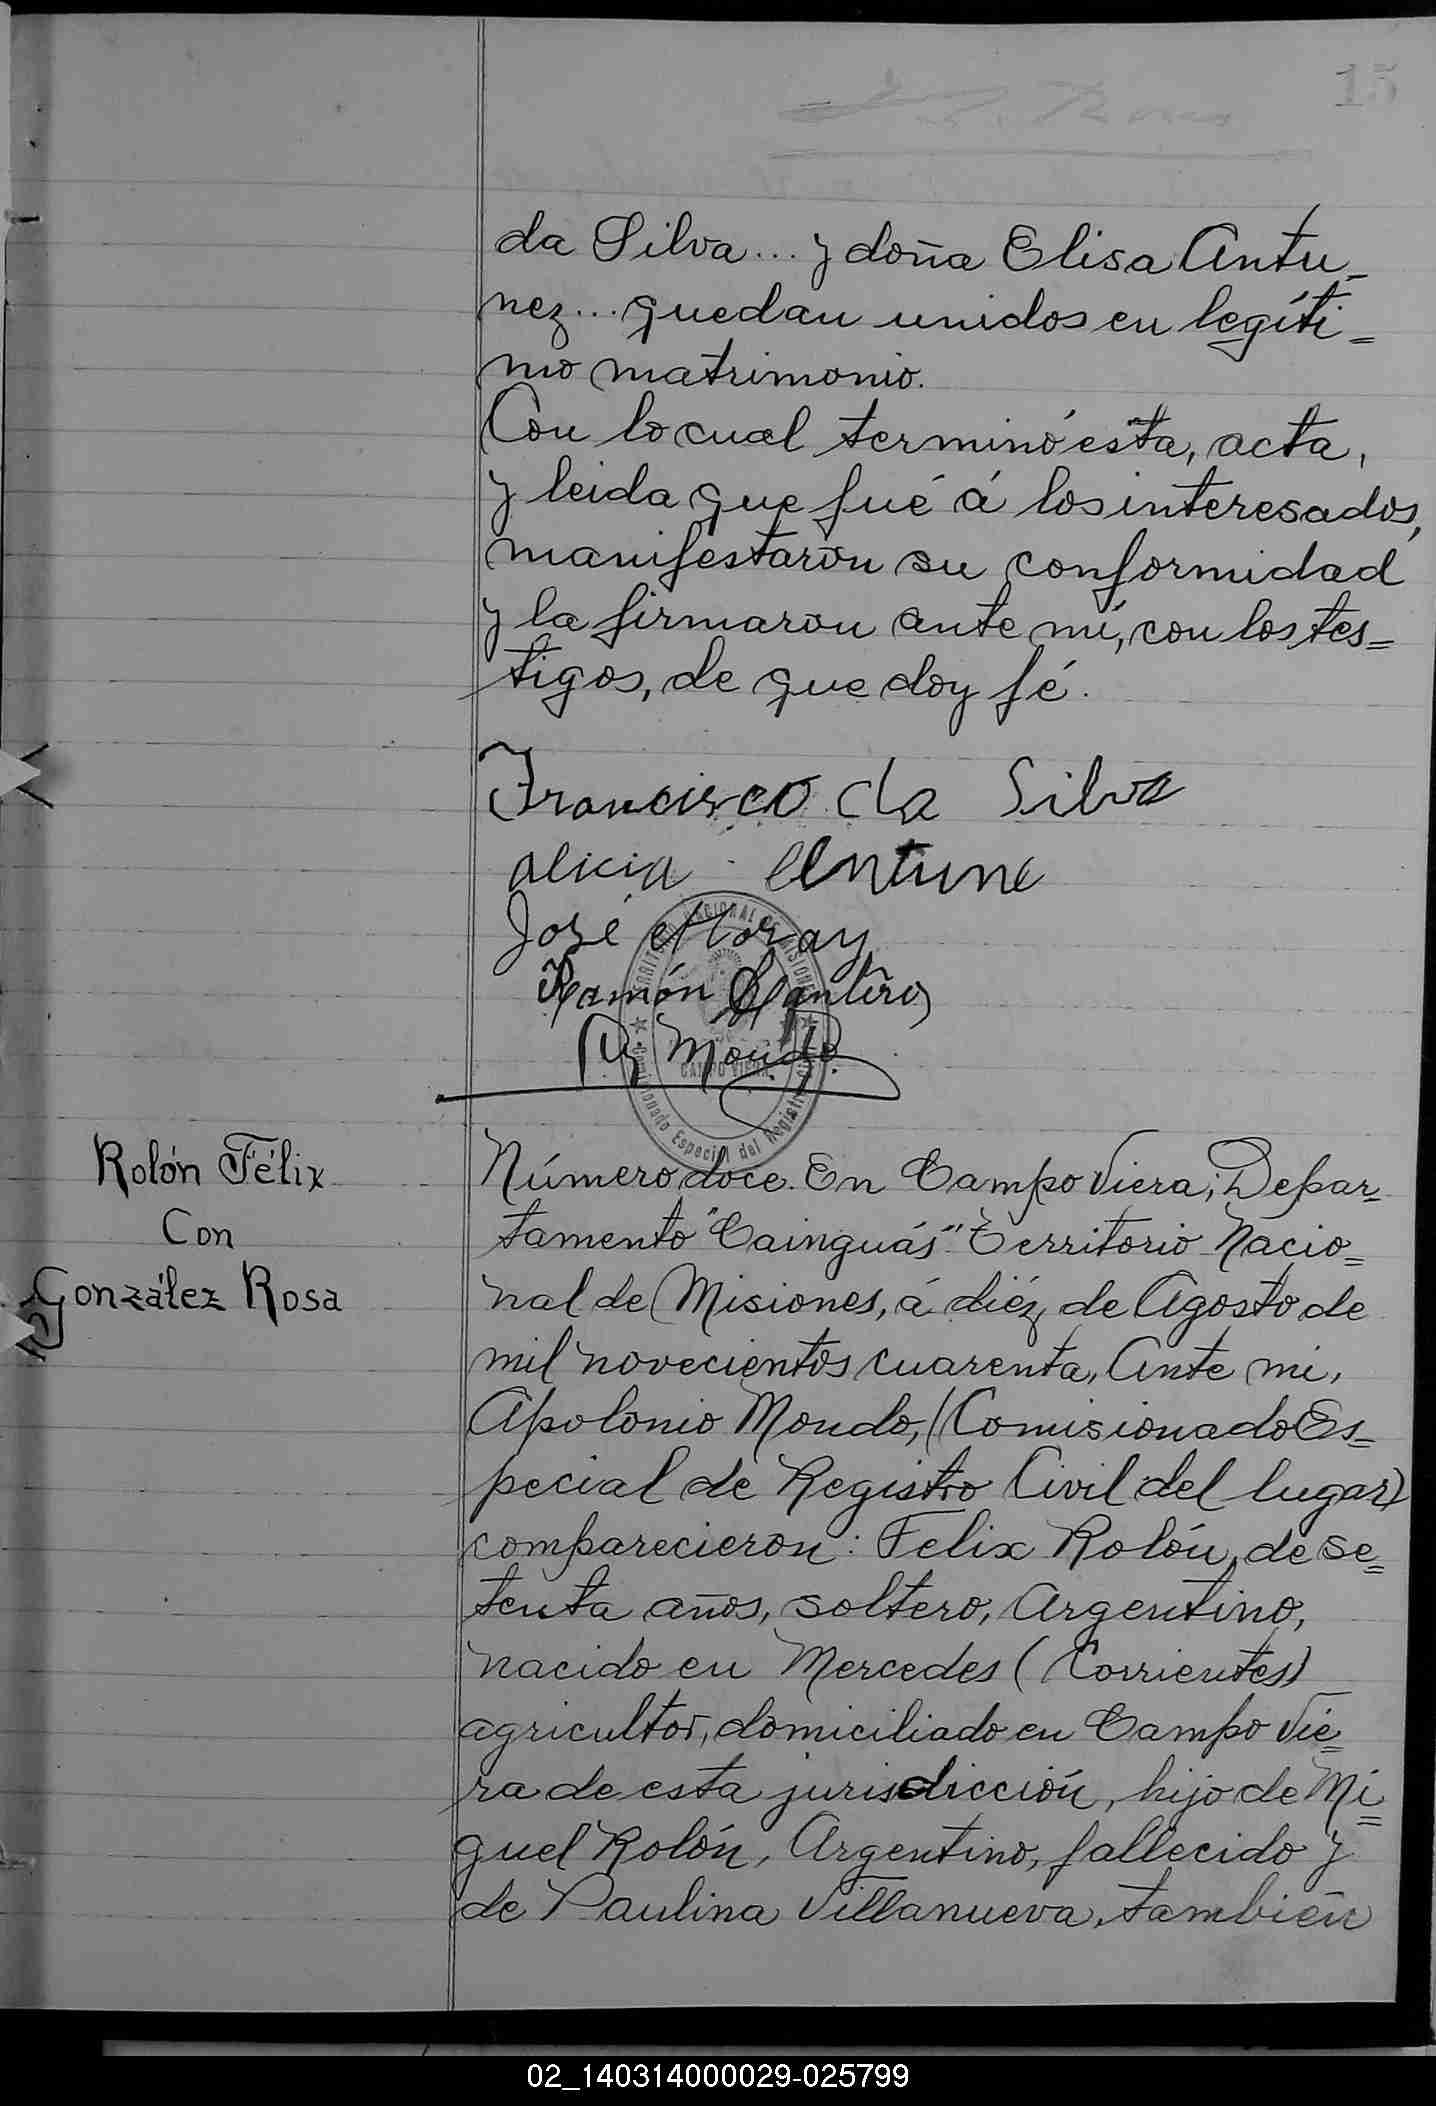 15
da Silva... y doña Elisa Antu-
nez... quedan unidos en legíti=
mo matrimonio.
Con lo cual terminó esta, acta,
y leida que fué á los interesados,
manifestaron su conformidad
y la firmaron ante mí, con los tes=
tigos, de que doy fé.
Francisco da Silva
alicia Antune
José Moray
Ramón
Mondo
TERRITORIO NACIONAL DE MISIONES
CAMPO VIERA
Comisionado Especial del Registro
Rolón Félix
Con
González Rosa
Número doce. En Campo Viera, Depar=
tamento "Cainguás" Territorio Nacio=
nal de Misiones, á diéz de Agosto de
mil novecientos cuarenta, Ante mi,
Apolonio Mondo, (Comisionado Es=
pecial de Registro Civil del lugar)
comparecieron: Felix Rolón, de se=
tenta años, soltero, Argentino,
nacido en Mercedes (Corrientes)
agricultor, domiciliado en Campo Vie=
ra de esta jurisdicción, hijo de Mi=
guel Rolón, Argentino, fallecido y
de Paulina Villanueva, también
02_140314000029-025799